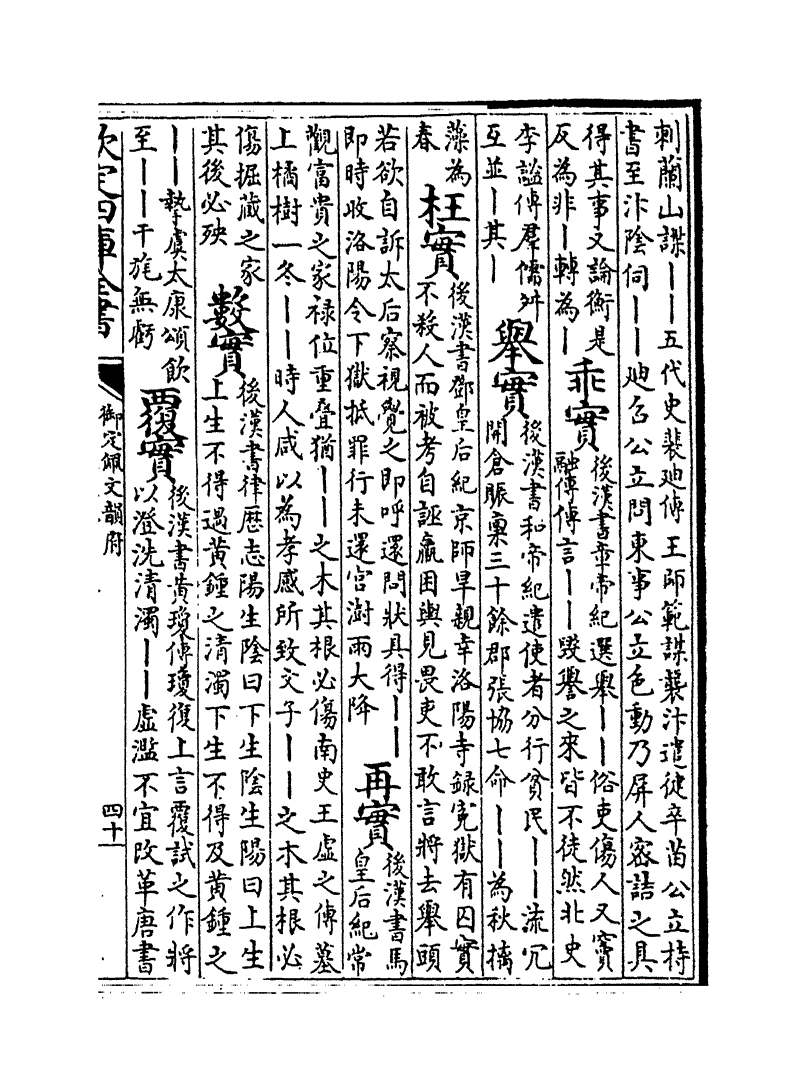 刺蘭山謀——五代史裴廸傳王師範謀襲汴遣徒卒苗公立持
書至汴陰伺——廸召公立問東事公立色動乃屏人密詰之具
得其事又論衡是
反為非—轉為—
乖實
後漢書章帝紀選舉——俗吏傷人又竇
融傳傳言——毀譽之來皆不徒然北史
李謐傳羣儒舛
互並—其—
舉實
後漢書和帝紀遣使者分行貧民——流冗
開倉賑稟三十餘郡張協七命——為秋摛
藻為
春
枉實
後漢書鄧皇后紀京師旱親幸洛陽寺録寃獄有囚實
不殺人而被考自誣羸困輿見畏吏不敢言將去舉頭
若欲自訴太后察視覺之即呼還問狀具得——
即時收洛陽令下獄抵罪行未還宫澍雨大降
再實
後漢書馬
皇后紀常
觀富貴之家禄位重疊猶——之木其根必傷南史王虛之傳墓
上橘樹一冬——時人咸以為孝感所致文子——之木其根必
傷掘藏之家
其後必殃
數實
後漢書律歷志陽生陰曰下生陰生陽曰上生
上生不得過黃鍾之清濁下生不得及黃鍾之
——摯虞太康頌飲
至——干旄無虧
覆實
後漢書黃瓊傳瓊復上言覆試之作將
以澄洗清濁——虛濫不宜改革唐書
欽定四庫全書
御定佩文韻府
四十一